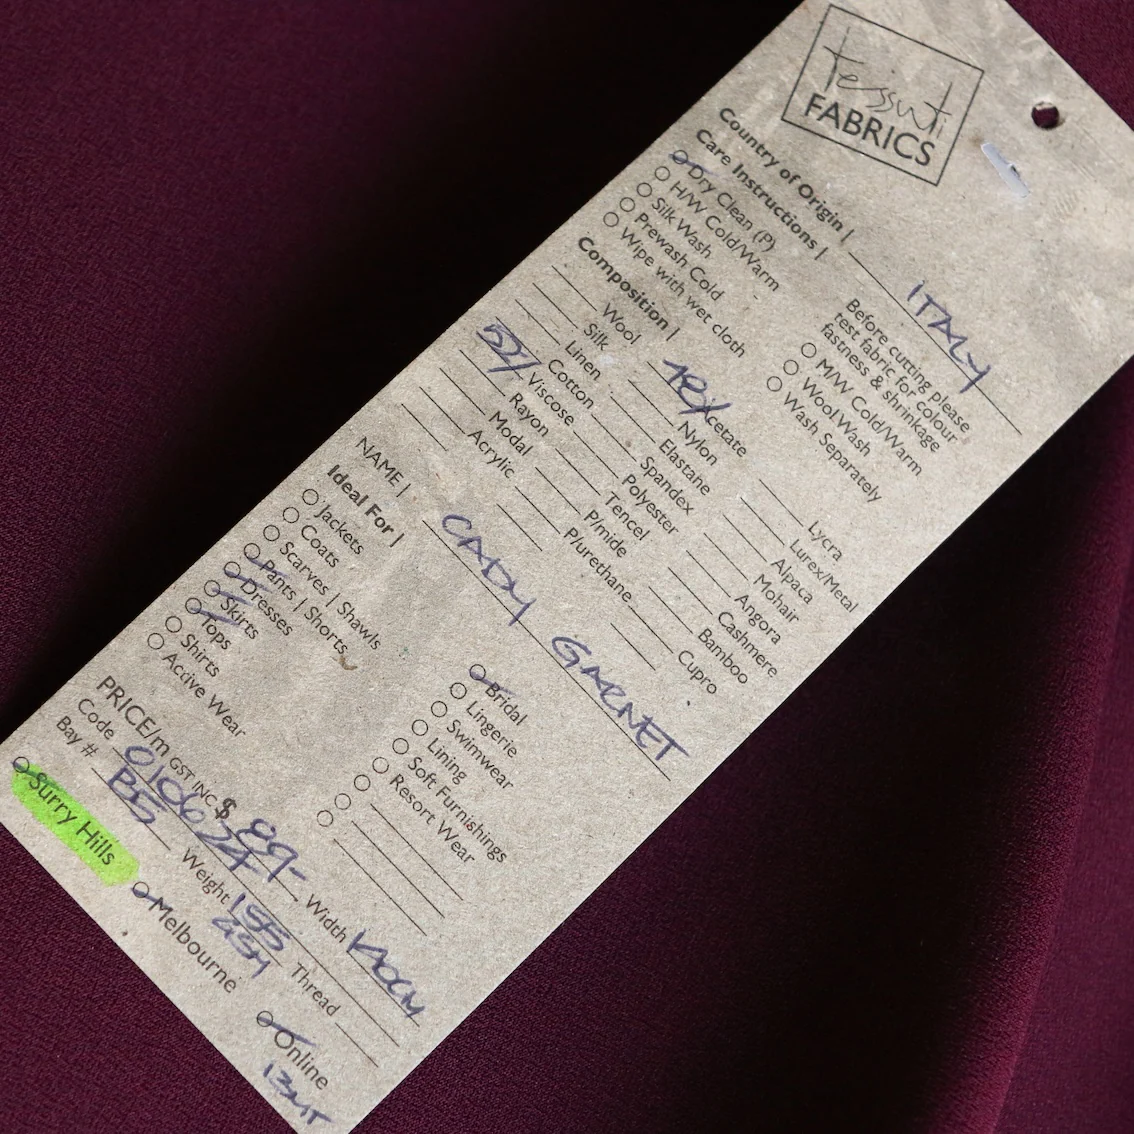 tessuti
FABRICS
Country of Origin | ITALY
Care Instructions |
Dry Clean (P)
H/W Cold/Warm
Silk Wash
Prewash Cold
Wipe with wet cloth
Before cutting please
test fabric for colour
fastness & shrinkage
M/W Cold/Warm
WoolWash
Wash Separately
Composition |
Wool
Silk
Linen
Cotton
52% Viscose
Rayon
Modal
Acrylic
48% Acetate
Nylon
Elastane
Spandex
Polyester
Tencel
P/mide
P/urethane
Lycra
Lurex/Metal
Alpaca
Mohair
Angora
Cashmere
Bamboo
Cupro
NAME | CADY GARNET
Ideal For |
Jackets
Coats
Scarves | Shawls
Pants | Shorts
Dresses
Skirts
Tops
Shirts
Active Wear
Bridal
Lingerie
Swimwear
Lining
Soft Furnishings
Resort Wear
PRICE/m GST INC $ 89- Width 140CM
Code 010624 Weight 155 GSM Thread
Bay # B5
Surry Hills
Melbourne
Online
13MT